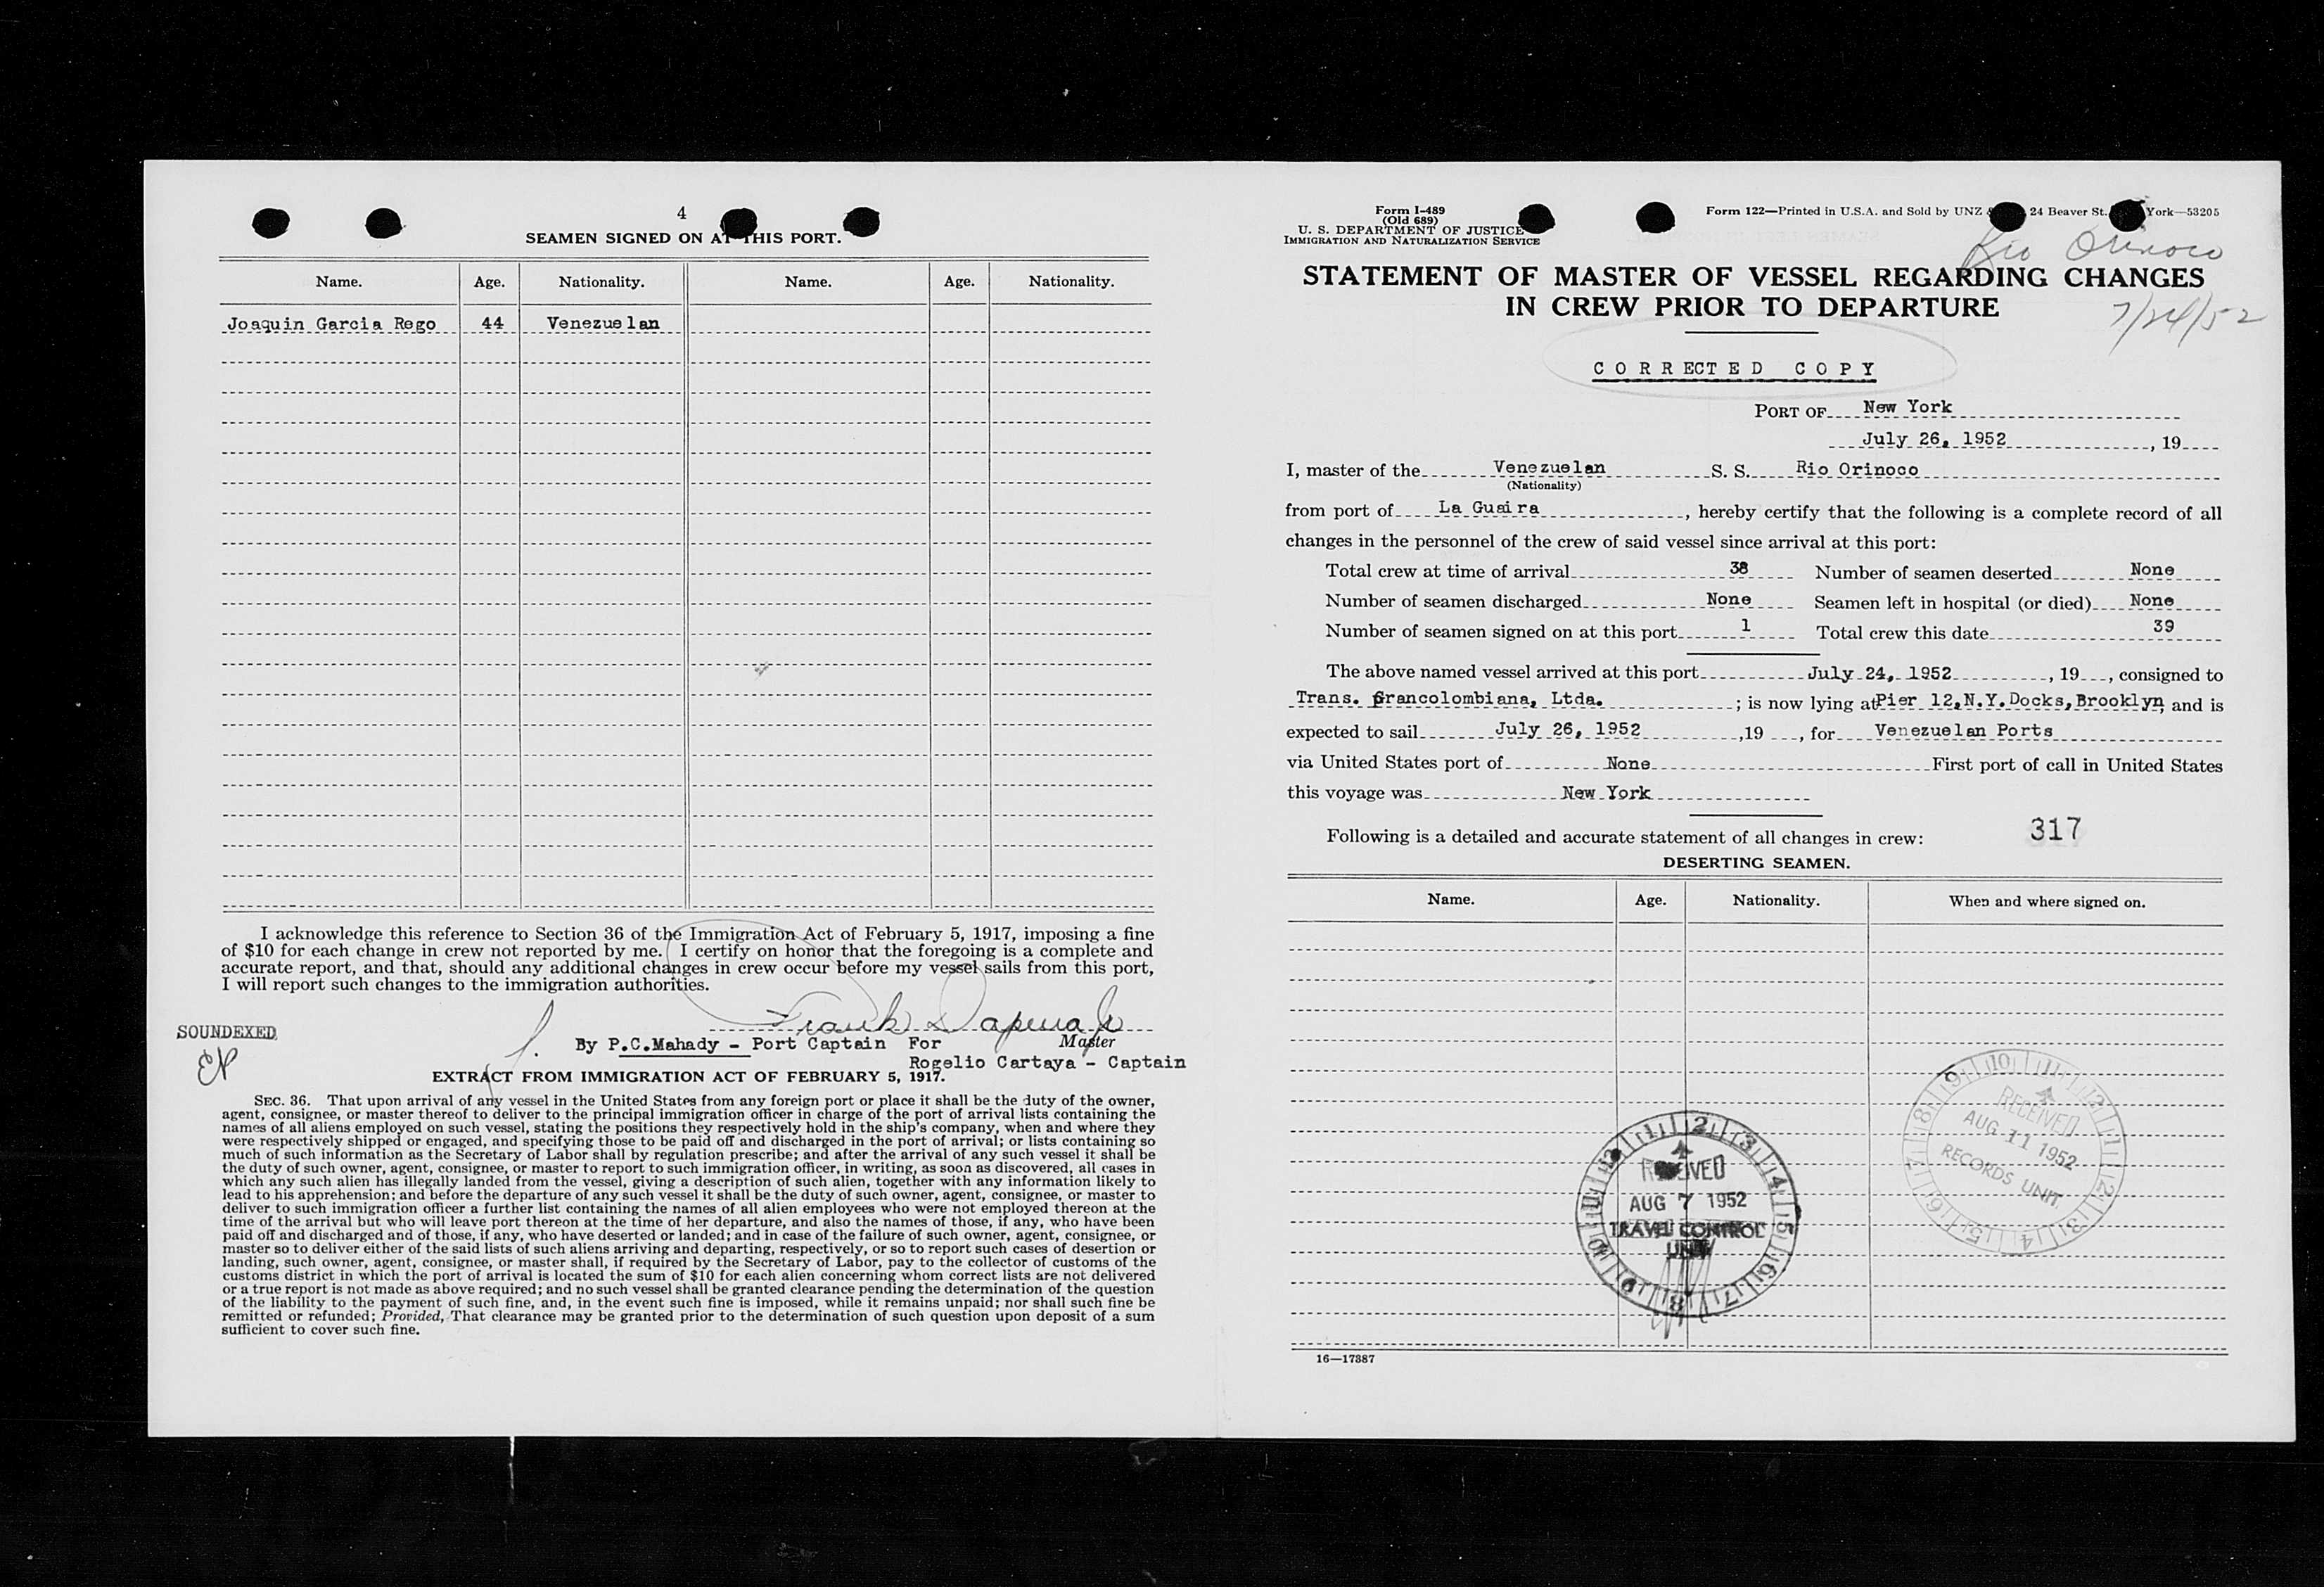 4
SEAMEN SIGNED ON AT THIS PORT.
Name. Age. Nationality. Name. Age. Nationality.
Joaquin Garcia Rego 44 Venezuelan
I acknowledge this reference to Section 36 of the Immigration Act of February 5, 1917, imposing a fine
of $10 for each change in crew not reported by me. I certify on honor that the foregoing is a complete and
accurate report, and that, should any additional changes in crew occur before my vessel sails from this port,
I will report such changes to the immigration authorities.
SOUNDEXED
Frank Dapena Jr
By P.C.Mahady - Port Captain For Master
Rogelio Cartaya - Captain
EXTRACT FROM IMMIGRATION ACT OF FEBRUARY 5, 1917.
SEC. 36. That upon arrival of any vessel in the United States from any foreign port or place it shall be the duty of the owner,
agent, consignee, or master thereof to deliver to the principal immigration officer in charge of the port of arrival lists containing the
names of all aliens employed on such vessel, stating the positions they respectively hold in the ship's company, when and where they
were respectively shipped or engaged, and specifying those to be paid off and discharged in the port of arrival; or lists containing so
much of such information as the Secretary of Labor shall by regulation prescribe; and after the arrival of any such vessel it shall be
the duty of such owner, agent, consignee, or master to report to such immigration officer, in writing, as soon as discovered, all cases in
which any such alien has illegally landed from the vessel, giving a description of such alien, together with any information likely to
lead to his apprehension; and before the departure of any such vessel it shall be the duty of such owner, agent, consignee, or master to
deliver to such immigration officer a further list containing the names of all alien employees who were not employed thereon at the
time of the arrival but who will leave port thereon at the time of her departure, and also the names of those, if any, who have been
paid off and discharged and of those, if any, who have deserted or landed; and in case of the failure of such owner, agent, consignee, or
master so to deliver either of the said lists of such aliens arriving and departing, respectively, or so to report such cases of desertion or
landing, such owner, agent, consignee, or master shall, if required by the Secretary of Labor, pay to the collector of customs of the
customs district in which the port of arrival is located the sum of $10 for each alien concerning whom correct lists are not delivered
or a true report is not made as above required; and no such vessel shall be granted clearance pending the determination of the question
of the liability to the payment of such fine, and, in the event such fine is imposed, while it remains unpaid; nor shall such fine be
remitted or refunded; Provided, That clearance may be granted prior to the determination of such question upon deposit of a sum
sufficient to cover such fine.
Form I-489
(Old 689)
U. S. DEPARTMENT OF JUSTICE
IMMIGRATION AND NATURALIZATION SERVICE
Form 122—Printed in U.S.A. and Sold by UNZ 24 Beaver St. York—53205
Rio Orinoco
STATEMENT OF MASTER OF VESSEL REGARDING CHANGES
IN CREW PRIOR TO DEPARTURE
7/24/52
CORRECTED COPY
PORT OF New York
July 26, 1952, 19
I, master of the Venezuelan S. S. Rio Orinoco
(Nationality)
from port of La Guaira, hereby certify that the following is a complete record of all
changes in the personnel of the crew of said vessel since arrival at this port:
Total crew at time of arrival 38 Number of seamen deserted None
Number of seamen discharged None Seamen left in hospital (or died) None
Number of seamen signed on at this port 1 Total crew this date 39
The above named vessel arrived at this port July 24, 1952, 19, consigned to
Trans. Grancolombiana, Ltda. ; is now lying at Pier 12,N.Y.Docks,Brooklyn, and is
expected to sail July 26, 1952, 19, for Venezuelan Ports
via United States port of None First port of call in United States
this voyage was New York
Following is a detailed and accurate statement of all changes in crew: 317
DESERTING SEAMEN.
Name. Age. Nationality. When and where signed on.
RECEIVED
AUG 7 1952
TRAVEL CONTROL
UNIT
RECEIVED
AUG 11 1952
RECORDS UNIT
16—17387